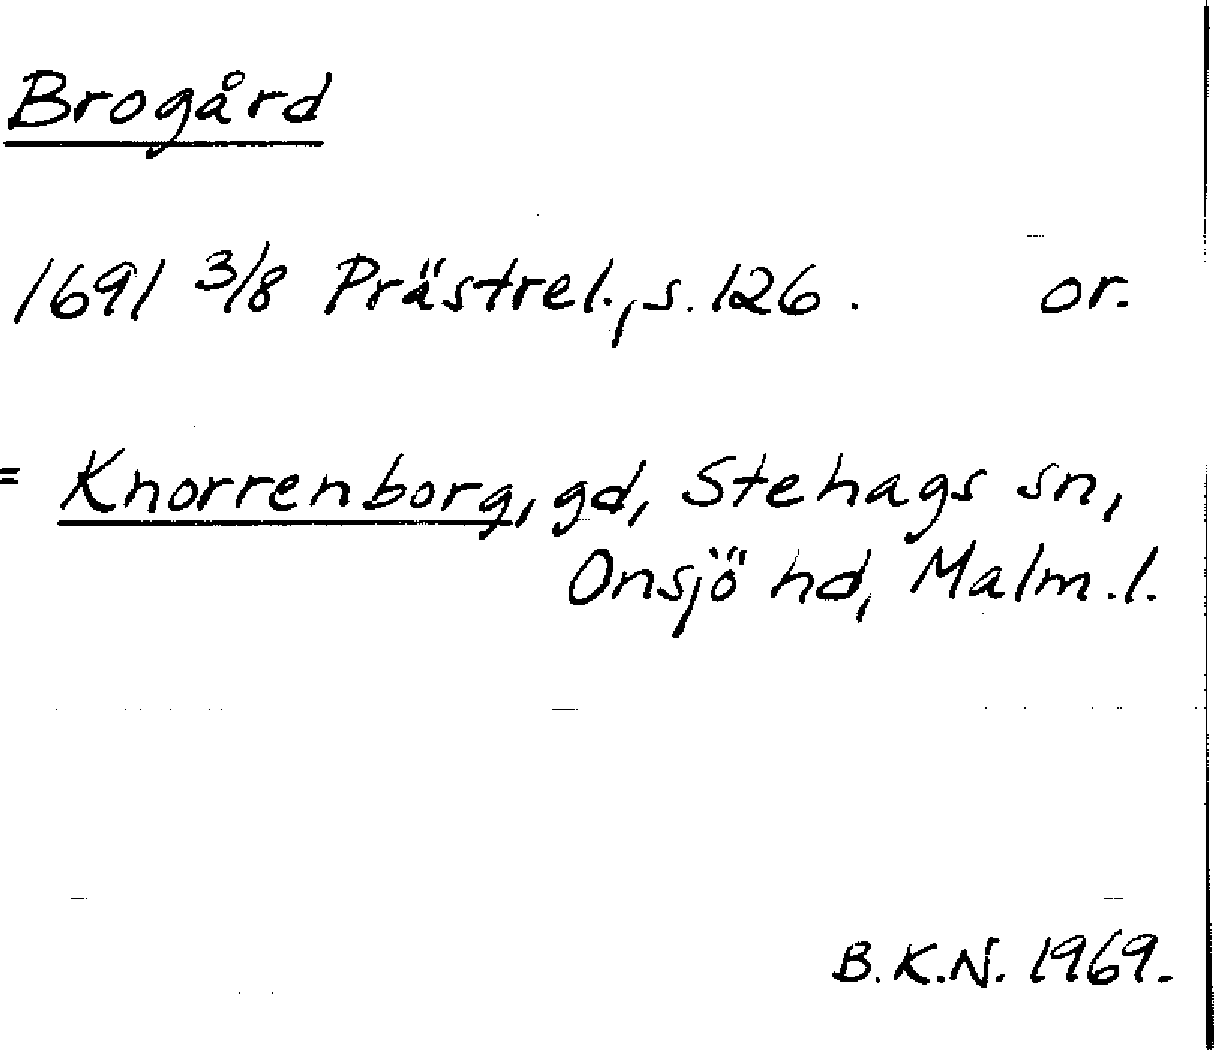 Brogård
1691 3/8 Prästrel., s. 126. or.
= Knorrenborg, gd, Stehags sn,
Onsjö hd, Malm. l.
B. K. N. 1969.